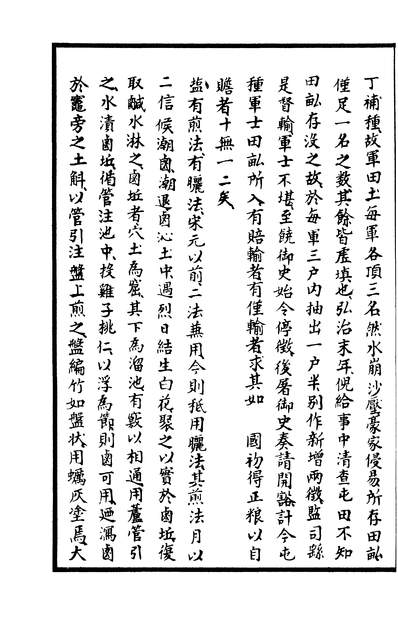 丁補種、故軍田土、每軍各頂三名、然水崩沙壓、豪家侵易、所存田畝
僅足一名之数、其餘皆虛填也、弘治末年、倪給事中清查屯田、不知
田畝存没之故、於每軍三户内抽出一户半、别作新增兩徵、監司縣
是督輸、軍士不堪、至饒御史始令停徵、後屠御史奏請開豁、計今屯
種軍士田畝所入、有賠輸者、有僅輸者、求其如　國初得正粮以自
贍者、十無一二矣
盐有煎法、有曬法、宋元以前、二法蕪用、今則抵用曬法、其煎法月以
二信候潮鹵、潮退、鹵沁土中、遇烈日結生白花、聚之以實於鹵坵、復
取鹹水淋之、鹵坵者、穴土為窟、其下為溜池、有竅以相通、用蘆管引
之、水漬鹵坵、循管注池中、投雞子桃仁、以浮為節、則鹵可用、迺瀉鹵
於竈旁之土斛、以管引注盤上煎之、盤編竹如盤状、用蠣灰塗焉、大